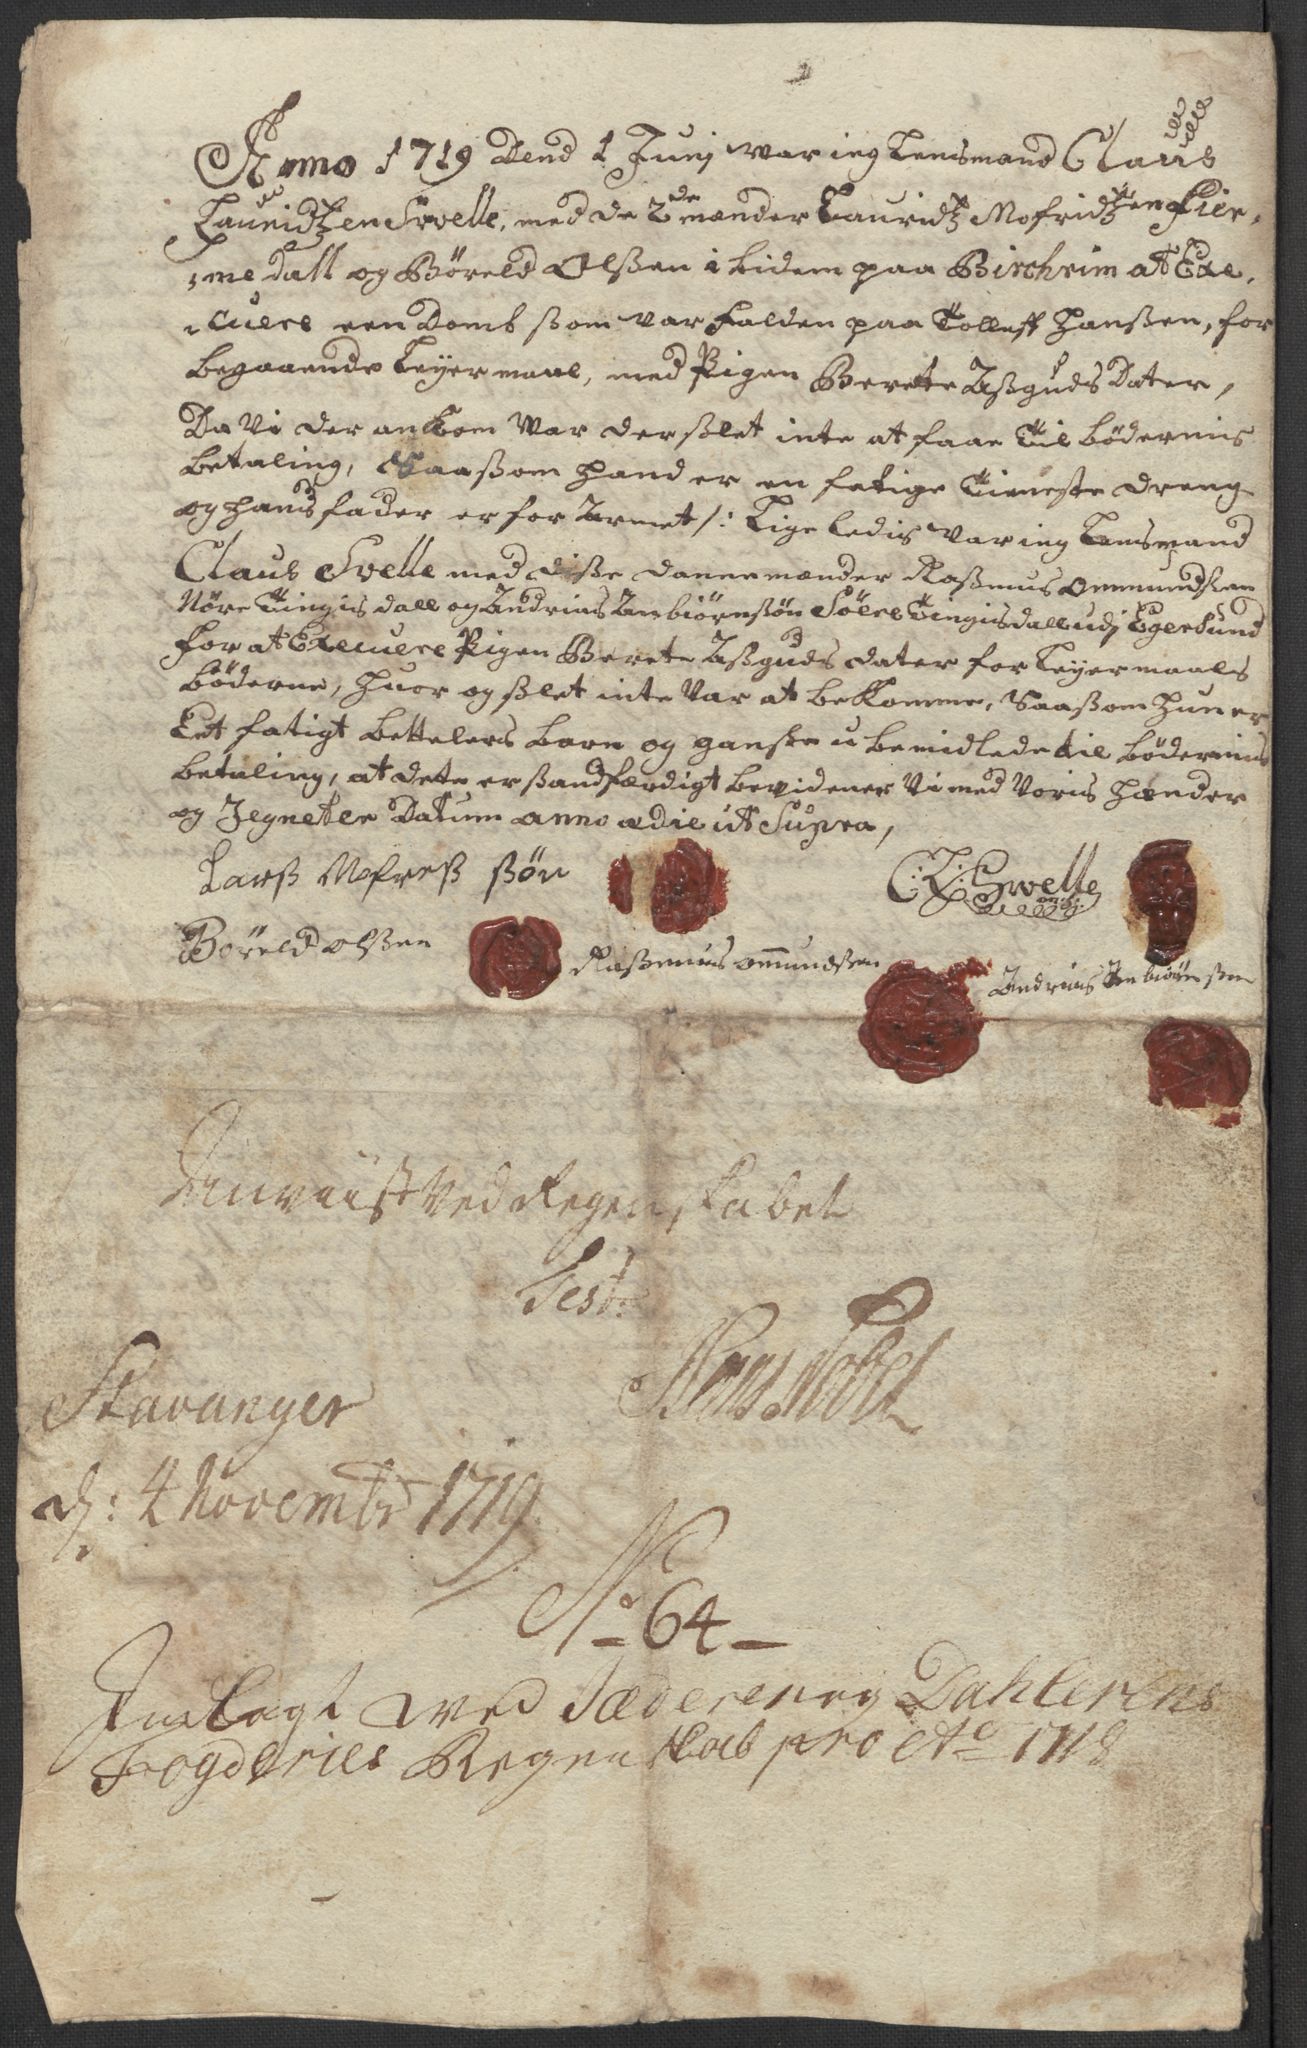 Anno 1719 Dend 1 Junj war ieg Lensmand Claus
Lauridtzen Svelle, med de 2de mænder Lauridtz Mofridtzen Fier¬
¬medall og Børeld Olßen ibidem paa Birchrim at Exe¬
¬cuere een Domb ßom var falden paa Tolleff Hanßen, for
begaaende Leyermaal, med Pigen Berete Aßguds Dater,
Da Vi der ankom War der slet inte at faae Til bødernis
betaling, Saaßom hand er en fatige Tieneste dreng
og hans fader er for Armet /: Lige ledis var ieg Lensmand
Claus Svelle med diße danemænder Raßmus Ommundßen
Nøre Tingisdall og Andrias Anbiørnsøn Søere Tingisdall udj Egersund
for at Execuere Pigen Berete Aßguds dater for Leyermaals
bøderne, huor og slet inte Var at bekomme, Saaßom hun er
Eet fatigt bettelers barn og ganske u bemidlede til bødernis
betaling, at dete er ßandfærdigt bevidener Vi med Voris hænder
og Zegneter Datum anno ædie ut Supra,
Larß Mofreß ßøn
C: L: Svelle
Børeld olßen
Raßmus ommundßen
Andrias Anbiørnßen
Anviist Ved Regenskabet
Test:
Stavanger
d: 4 Novembr 1719
No 64
Indlagt ved Jæderen og Dahlerens
Fogderies Regenskab pro Ao 1718